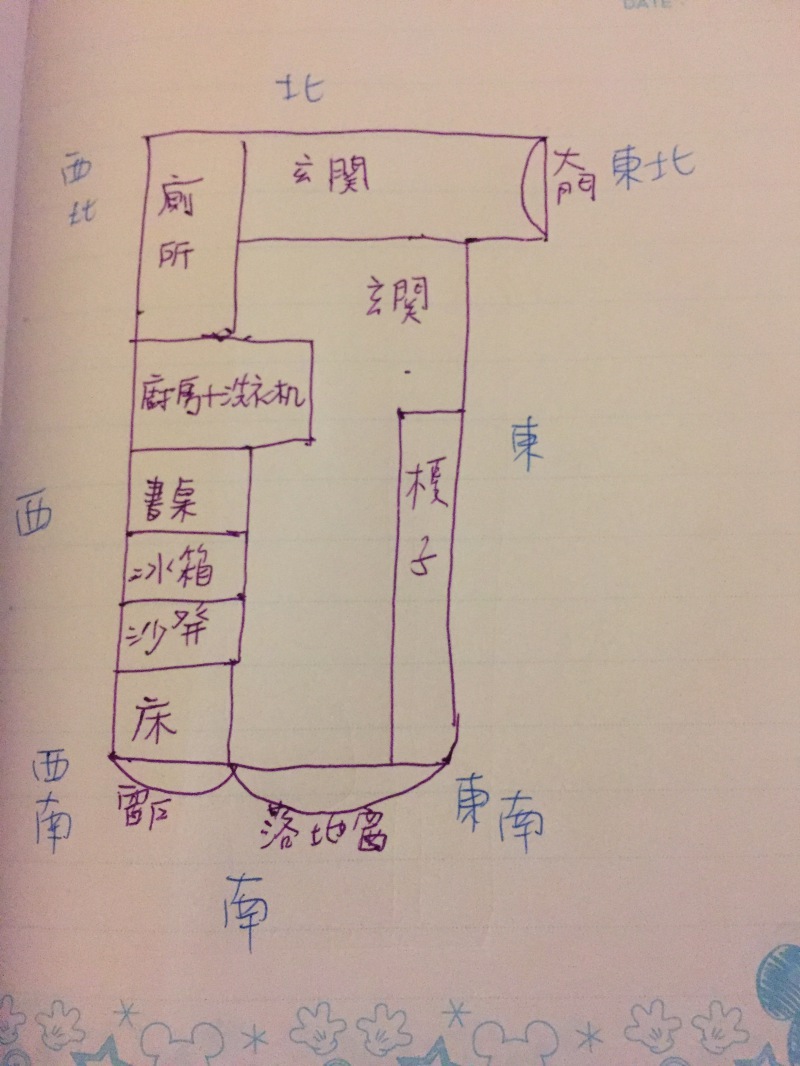 DATE
北
西
北
廁
所
玄関
大
門
東北
玄関
廚房+洗衣机
東
櫃
子
西
書桌
冰箱
沙發
床
西
南
窗户
落地窗
東南
南